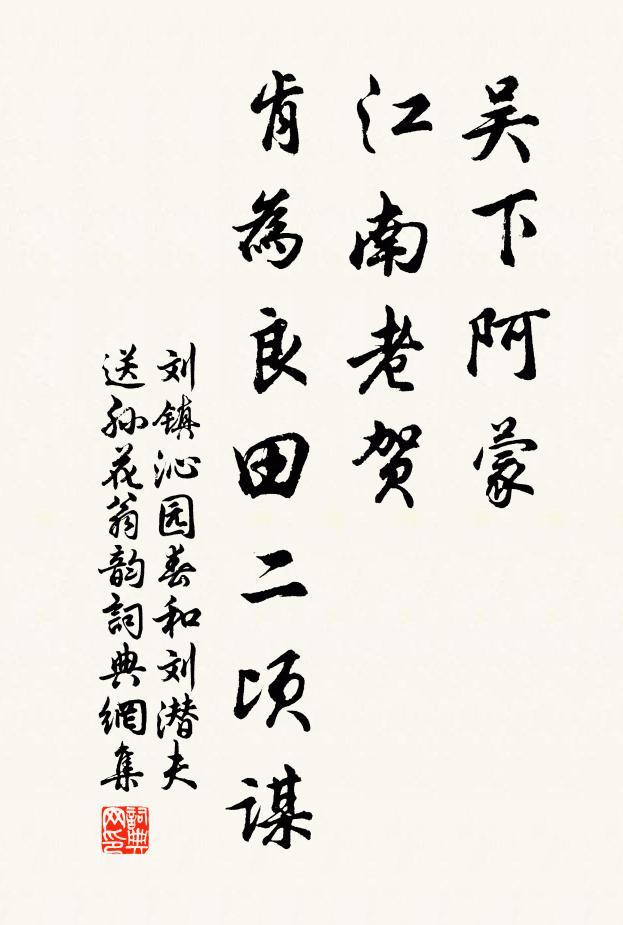 吴下阿蒙
江南老贺
肯為良田二顷謀
刘镇沁园春和刘潜夫
送孙花翁韵詞典網集
詞典网印